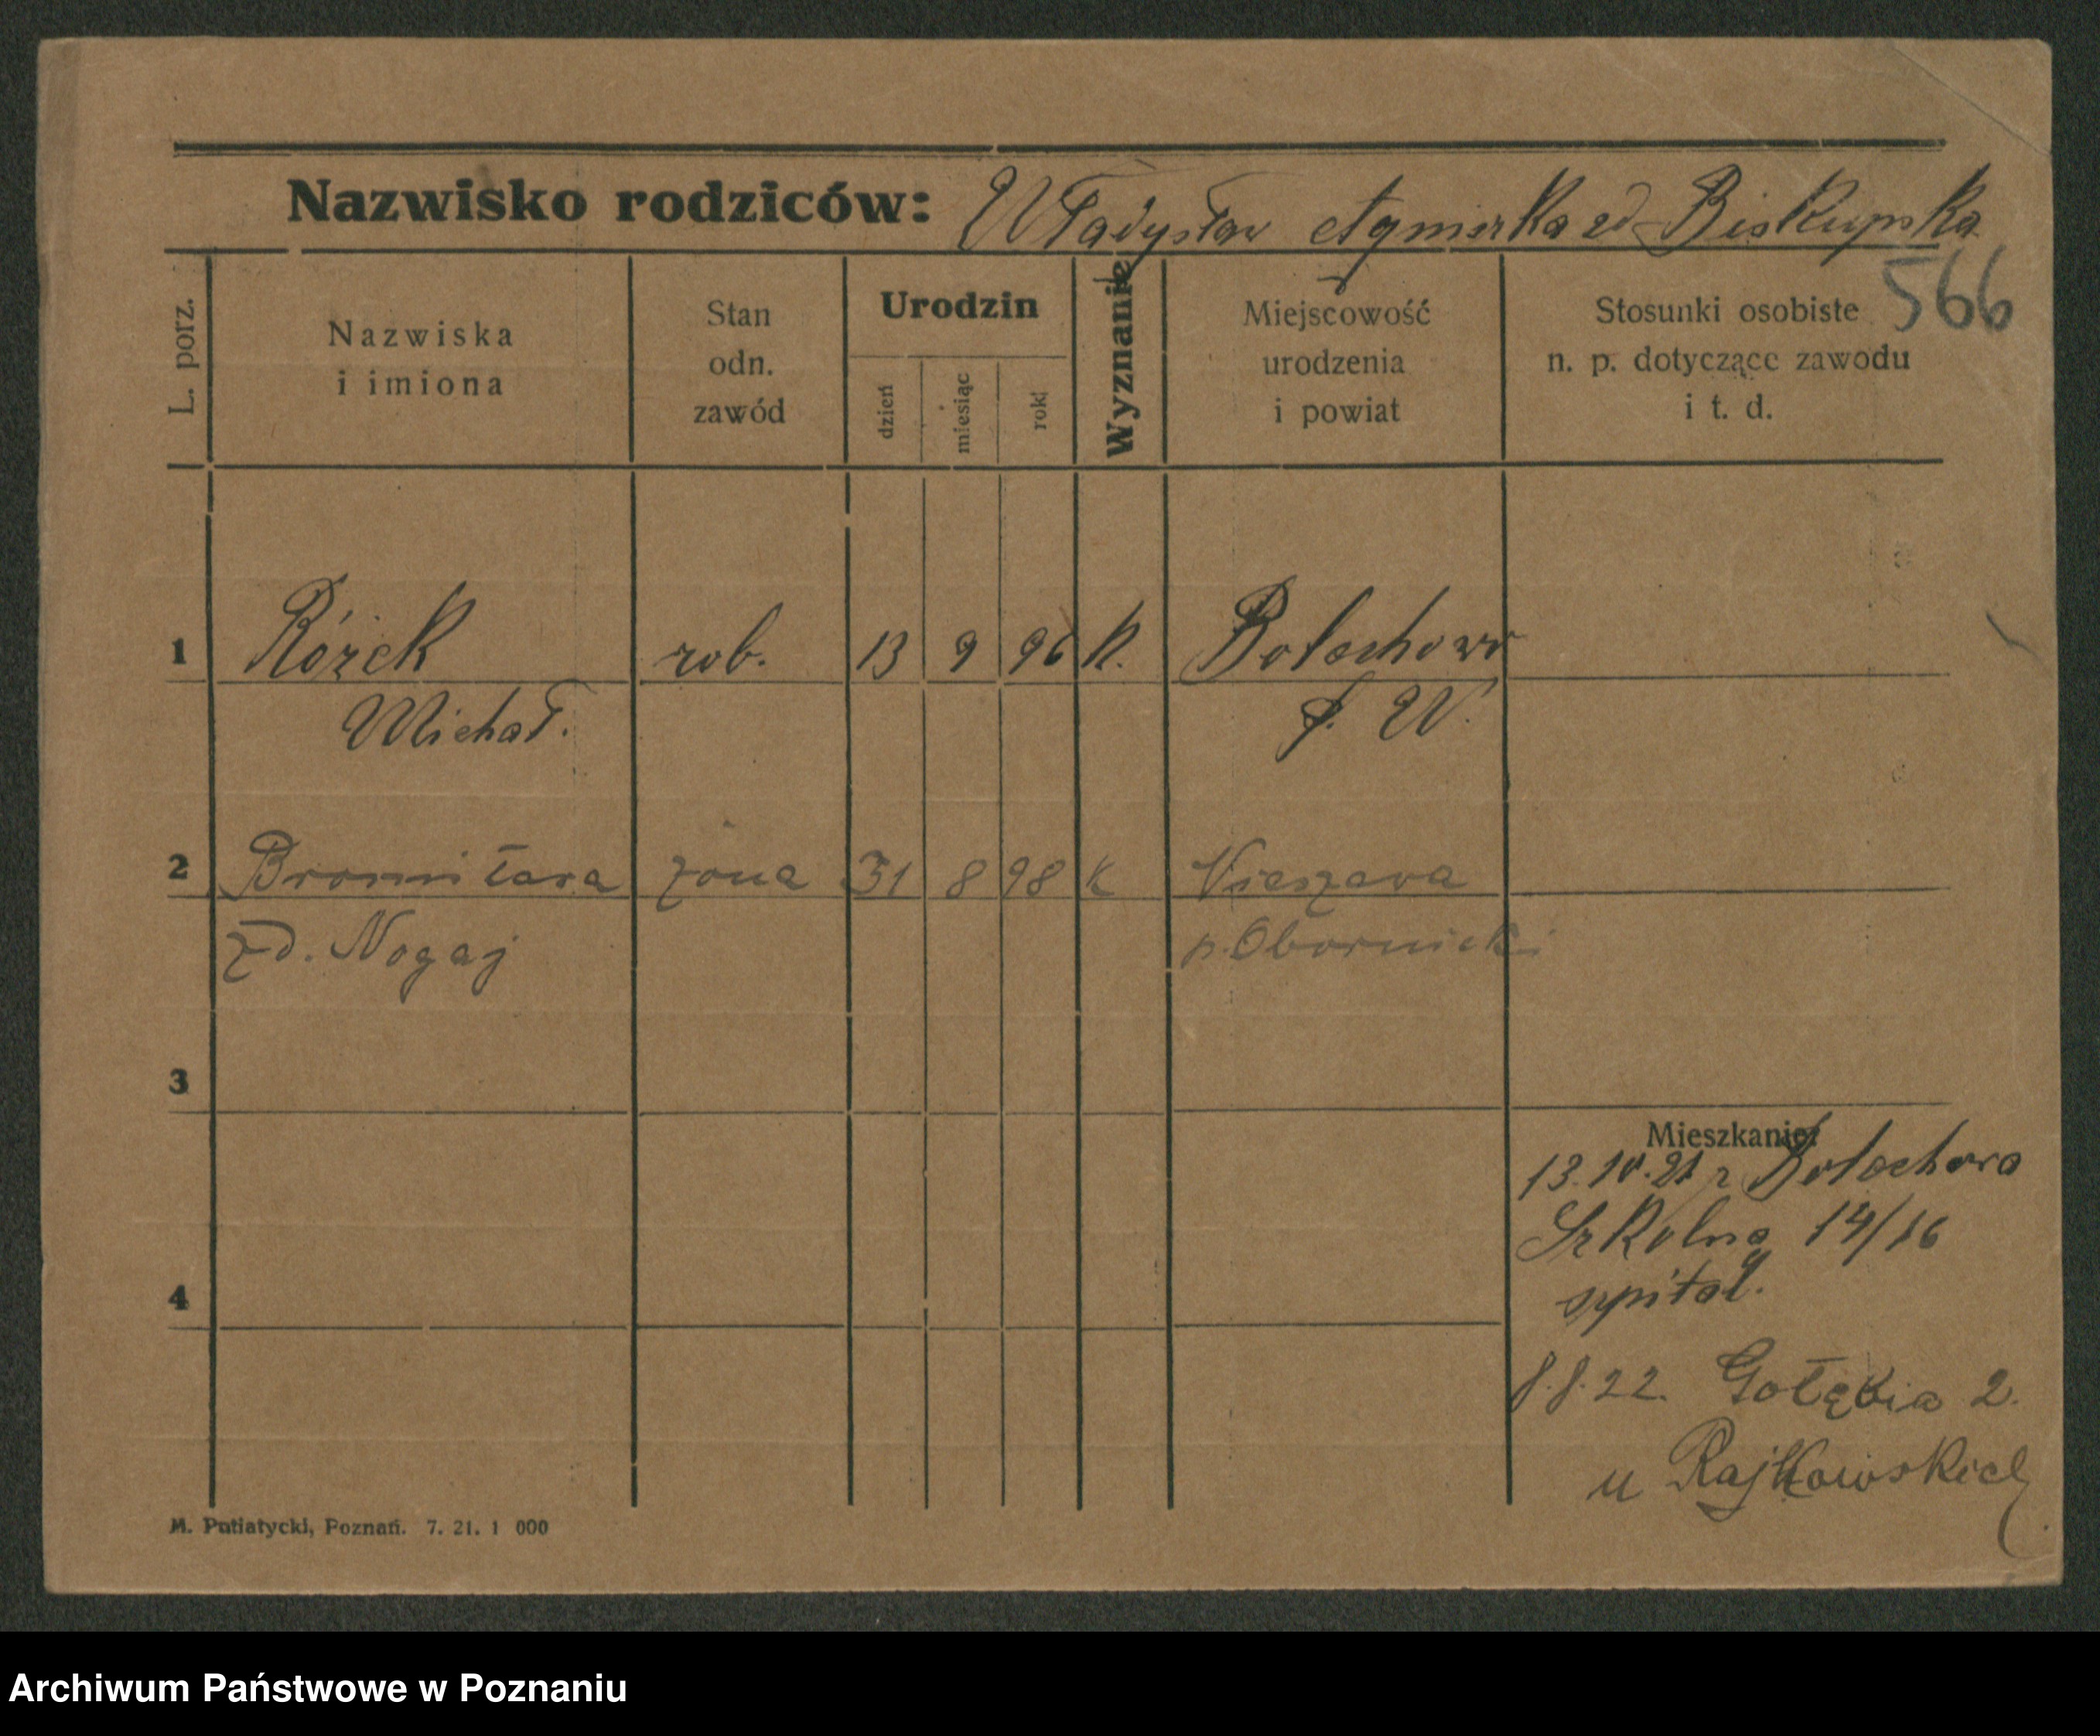 Nazwisko rodziców: Władysław Agnieszka zd Biskupska
566
L. porz.
Nazwiska
i imiona
Stan
odn.
zawód
Urodzin
dzień
miesiąc
rok
Wyznanie
Miejscowość
urodzenia
i powiat
Stosunki osobiste
n. p. dotyczące zawodu
i t. d.
1 Różek rob. 13 9 96 K. Bolechowo
Michał. p. W.
2 Bronisława żona 31 8 98 K
zd. Nogaj p. Obornicki
3
Mieszkanie:
13.10.21 z Bolechowa
Szkolna 14/16
szpital.
4
22. Gołębia 2.
u Rajkowskich
M. Putiatycki, Poznań. 7. 21. 1 000
Archiwum Państwowe w Poznaniu